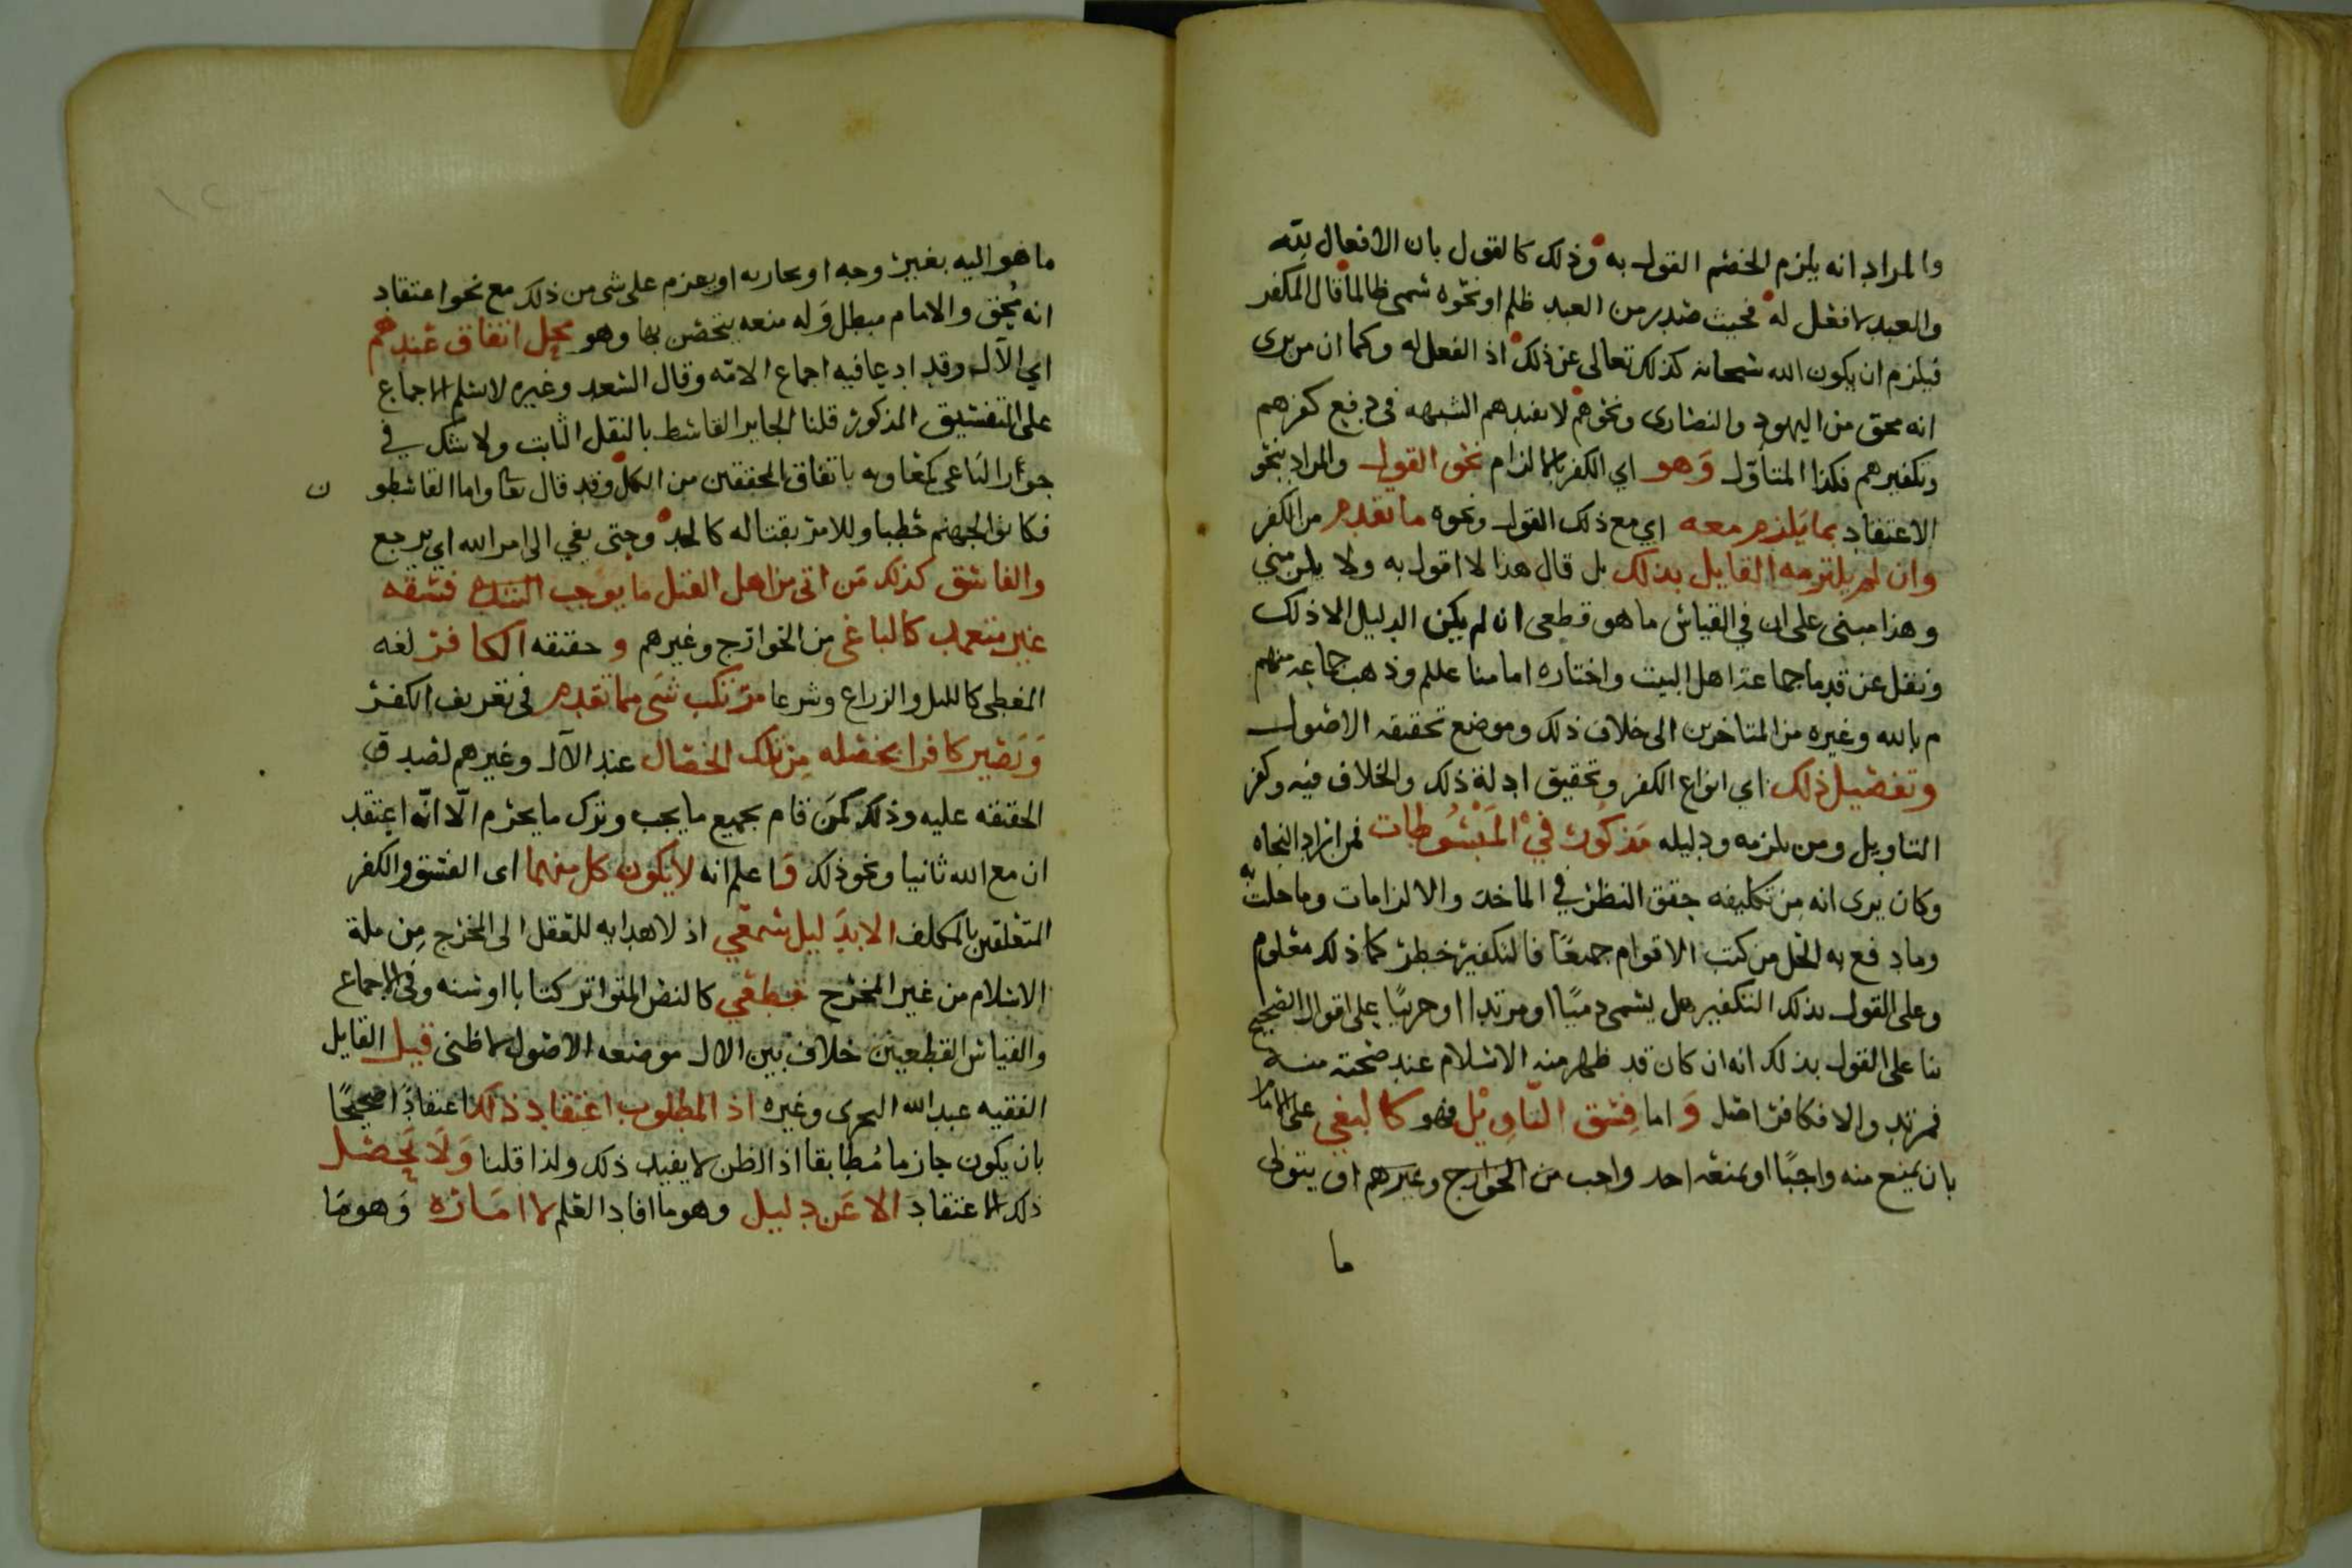 والمراد انه يلزم الخصم القول به وذلك كالقول بان الافعال لله
والعبد لا فعل له فحيث صدر من العبد ظلم او نحوه سمى ظالما قال المكفر
فيلزم ان يكون الله سبحانه كذلك تعالى عن ذلك اذ الفعل له وكما ان من يرى
انه محق من اليهود والنصارى ونحوهم لا تفيدهم الشبهه في دفع كفرهم
وتكفيرهم فكذا المتاول وهو اي الكفر بالالزام نحو القول والمراد بنحو
الاعتقاد بما يلزم معه اي مع ذلك القول ونحوه ما تقدم من الكفر
وان لم يلتزمه القايل بذلك بل قال هذا لا اقول به ولا يلزمني
وهذا مبني على ان في القياس ما هو قطعي ان لم يكن الدليل الا ذلك
ونقل عن قدما جماعة اهل البيت واختاره امامنا علم وذهب جماعه منهم
م بالله وغيره من المتاخرين الى خلاف ذلك وموضع تحقيقه الاصول
وتفصيل ذلك اي انواع الكفر وتحقيق ادلة ذلك والخلاف فيه وكفر
التاويل ومن يلزمه ودليله مذكور في المبسوطات فمن اراد النجاه
وكان يرى انه من تكليفه حقق النظر في الماخذ والالزامات وما حلت به
وما دفع به الحل من كتب الاقوام جميعا فالتكفير خطر كما ذلك معلوم
وعلى القول بذلك التكفير هل يسمى ذميا او مرتدا او حربيا على اقوال الصحيح
بنا على القول بذلك انه ان كان قد ظهر منه الاسلام عند صحته منه
فمرتد والا فكافر اصل و اما فسق التاويل فهو كالبغي على الامام
بان يمنع منه واجبا او يمنعه احد واجب من الخوارج وغيرهم او يتولى
ما
ما هو اليه بغير وجه او يحاربه او يعزم على شى من ذلك مع نحو اعتقاد
انه محق والامام مبطل وله منعه يتحصن بها وهو محل اتفاق عندهم
اي الآل وقد ادعا فيه اجماع الامه وقال السعد وغيره لا نسلم الاجماع
على التفسيق المذكور قلنا الجاير القاسط بالنقل الثابت ولا شك في
جوار الباغي كمعاويه باتفاق المحققين من الكل وقد قال تعا واما القاسطو ن
فكانوا لجهنم حطبا وللامر بقتاله كالحد وحتى يفي الى امر الله اي يرجع
والفاسق كذلك من اتى من اهل القبل ما يوجب فسقه
غير متعمد كالباغي من الخوارج وغيرهم و حقيقه الكافر لغه
المغطى كالليل والزراع وشرعا مرتكب شي مما تقدم في تعريف الكفر
ويصير كافرا بخصله من تلك الخصال عند الآل وغيرهم لصدق
الحقيقه عليه وذلك كمن قام بجميع ما يجب وترك ما يحرم الّا انّه اعتقد
ان مع الله ثانيا ونحو ذلك و اعلم انه لا يكون كل منهما اى الفسق والكفر
المتعلقين بالمكلف الا بدليل سمعي اذ لا هدايه للعقل الى المخرج من ملة
الاسلام من غير المخرج قطعي كالنص المتواتر كتابا او سنه وفي الاجماع
والقياس القطعيين خلاف بين الال موضعه الاصول لا ظني قيل القايل
الفقيه عبدالله وغيره اذ المطلوب اعتقاد ذلك اعتقادا صحيحا
بان يكون جازما مطابقا اذ الظن لا يفيد ذلك ولذا قلنا ولا يحصل
ذلك الاعتقاد الا عن دليل وهو ما افاد العلم لا امارة وهو ما